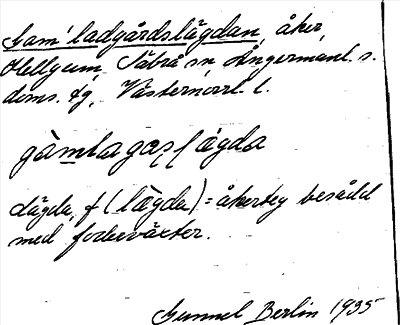 Gam'ladgårdslägdan, åker,
Hellgum, Säbrå sn Ångermanl. s.
doms. tg, Västernorrl. l.
gàmlagaṣl ægda
Lägda, f (lægda) = åkerteg besådd
med foderväxter.
Gunnel Berlin 1935